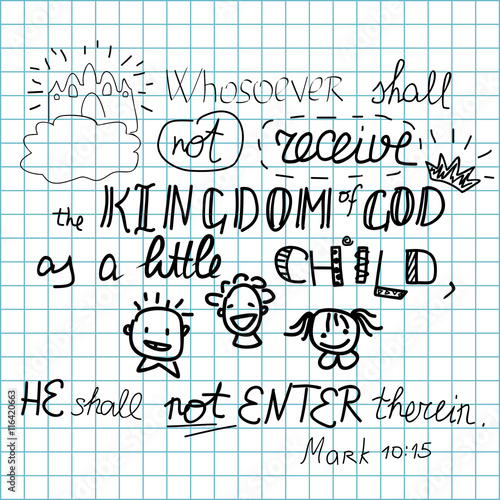 Whosoever shall
not receive
the KINGDOM of GOD
as a little CHILD,
HE shall not ENTER therein.
Mark 10:15
Adobe Stock | #116420663